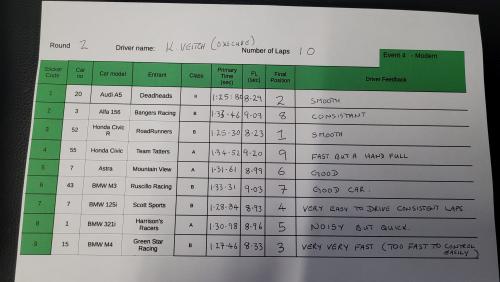 Round 2 Driver name: K VEITCH (OXSCARS) Number of Laps 10
Event 4 - Modern
Sticker Code Car no Car model Entrant Class Primary Time (sec) FL (sec) Final Position Driver Feedback
1 20 Audi A5 Deadheads B 1:25.80 8.29 2 SMOOTH
2 3 Alfa 156 Bangers Racing B 1:33.46 9.09 8 CONSISTANT
3 52 Honda Civic R RoadRunners B 1:25.30 8.23 1 SMOOTH
4 55 Honda Civic Team Tatters A 1:34.52 9.20 9 FAST BUT A HAND FULL
5 7 Astra Mountain View A 1:31.61 8.99 6 GOOD
6 43 BMW M3 Ruscillo Racing B 1:33.31 9.03 7 GOOD CAR.
7 7 BMW 125i Scott Sports B 1:28.84 8.93 4 VERY EASY TO DRIVE CONSISTENT LAPS
8 1 BMW 321i Harrison's Racers A 1:30.98 8.96 5 NOISY BUT QUICK.
9 15 BMW M4 Green Star Racing B 1:27.46 8.33 3 VERY VERY FAST (TOO FAST TO CONTROL EASILY)